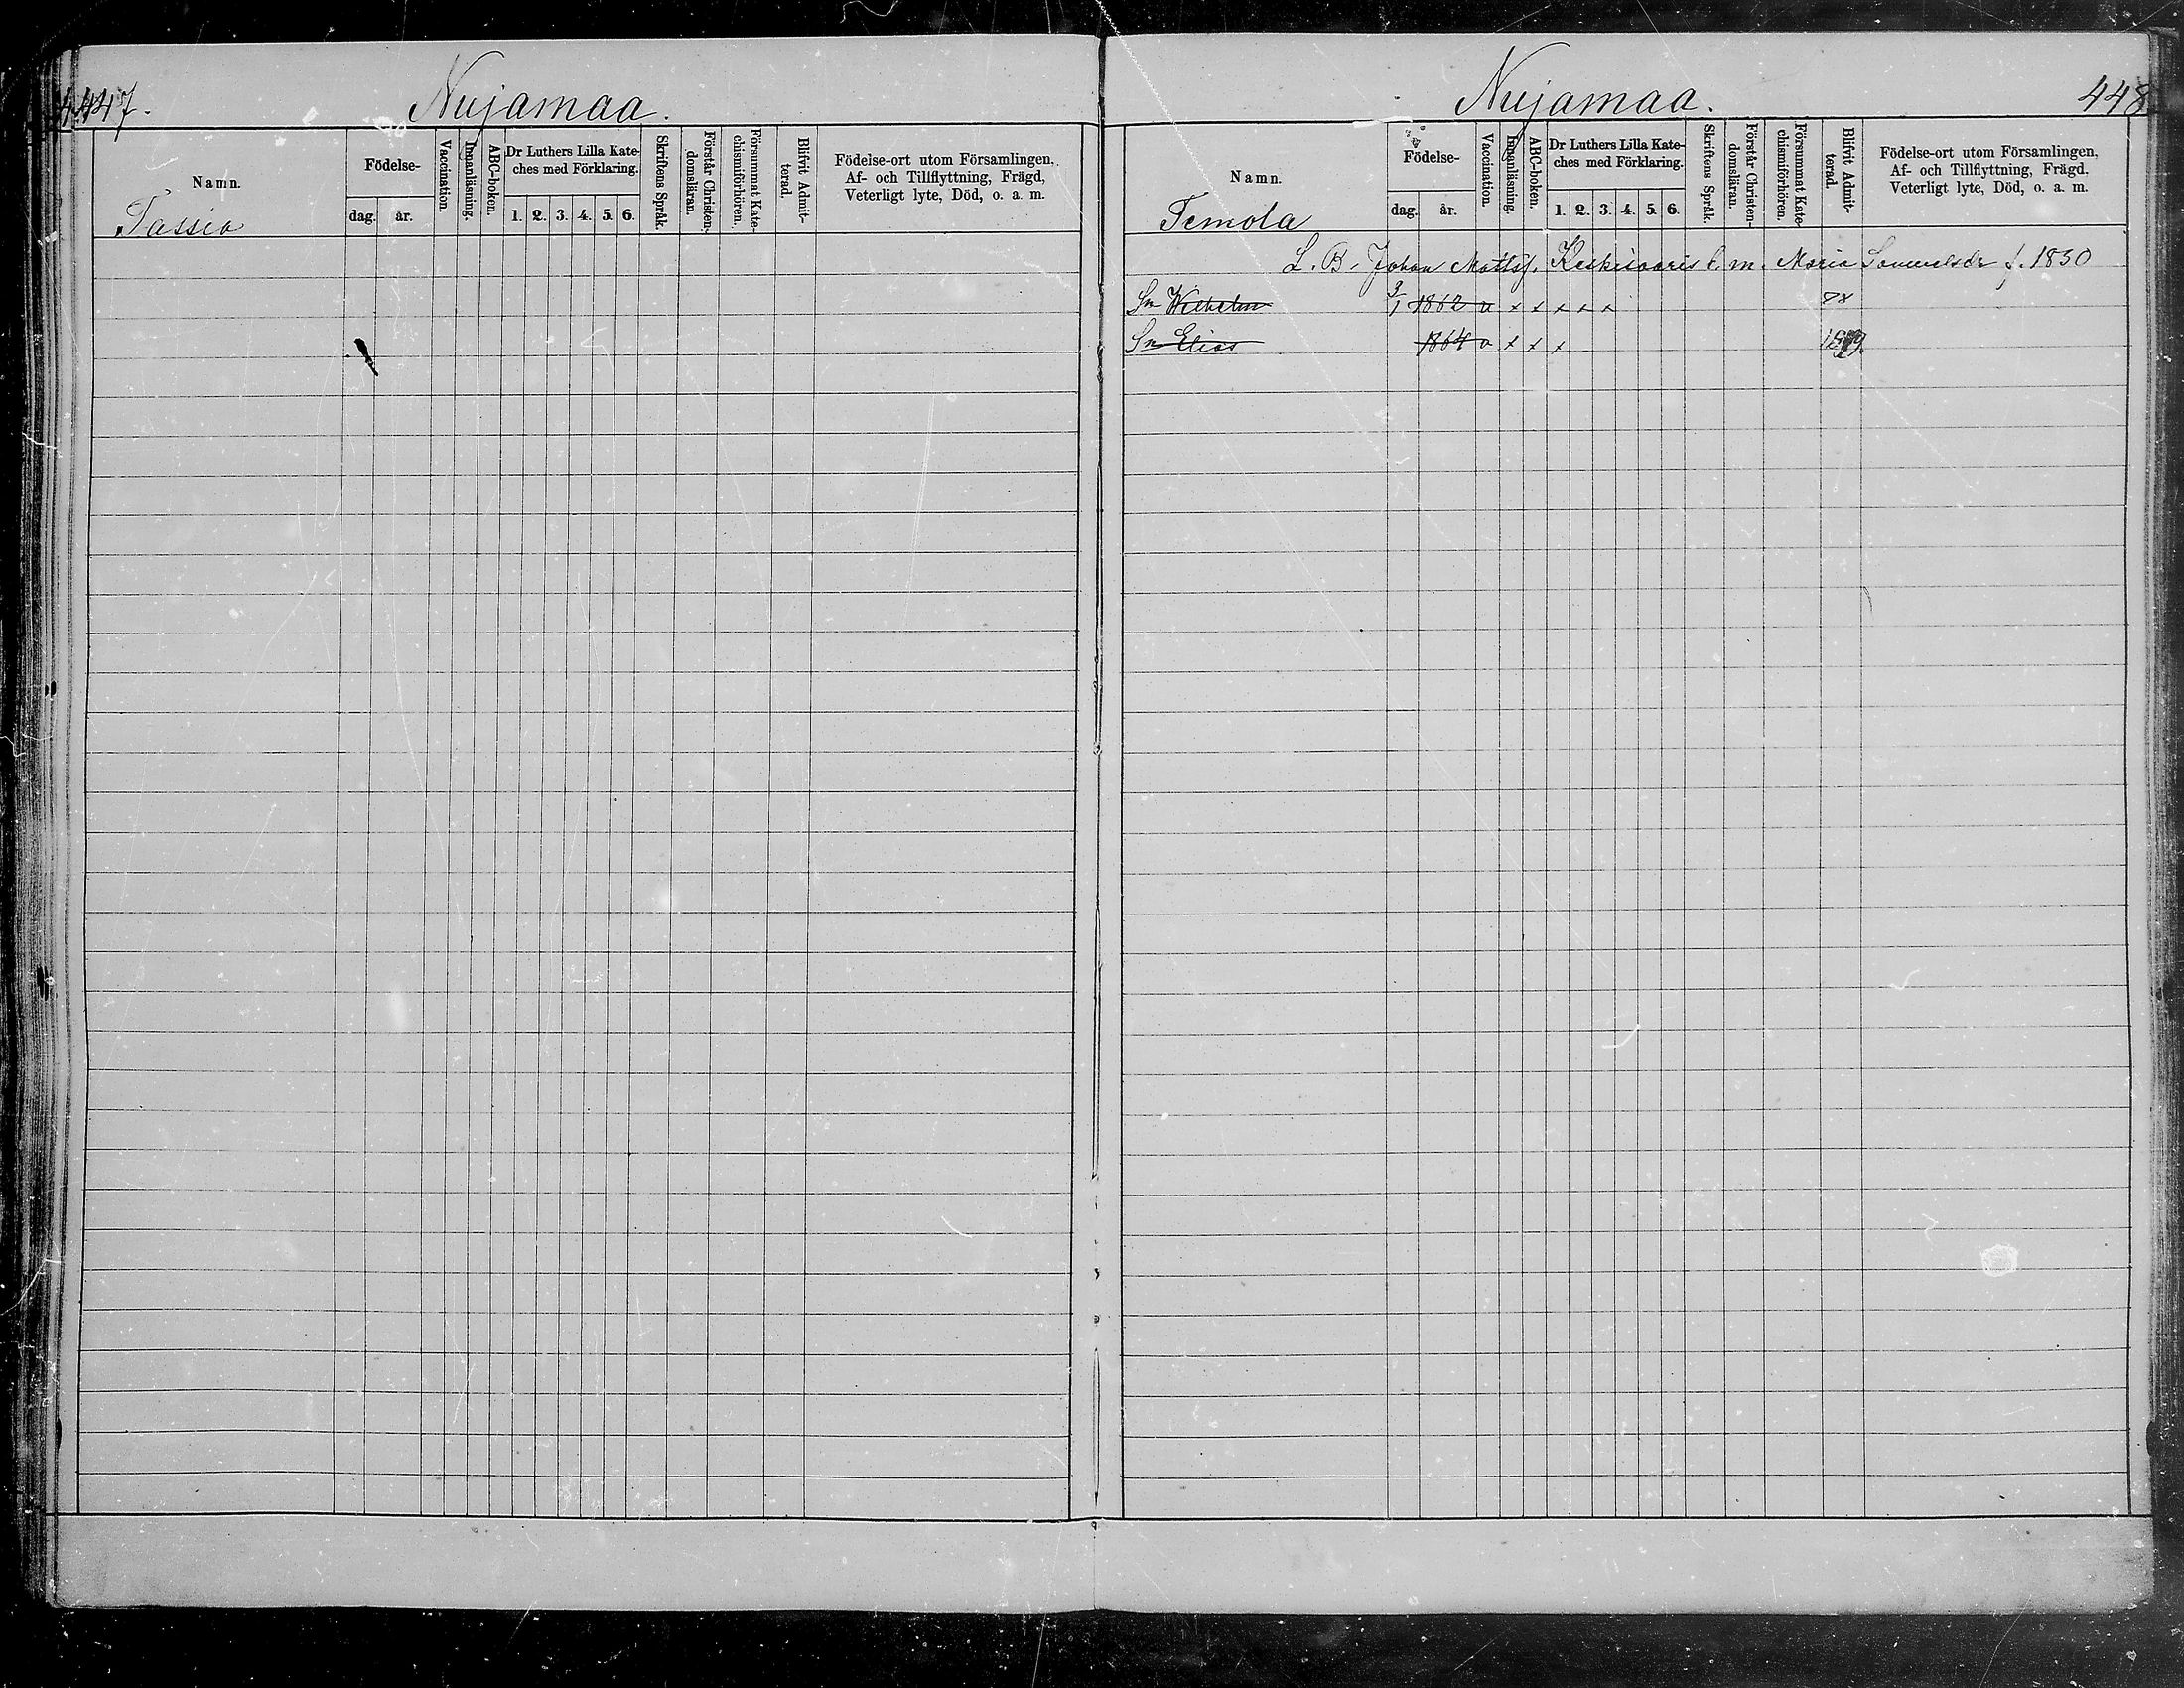 447.
Nujamaa.
Namn.
Födelse-
dag.
år.
Vaccination.
Innanläsning.
ABC-boken.
Dr Luthers Lilla Kate-
ches med Förklaring.
1. 2. 3. 4. 5. 6.
Skriftens Språk.
Förstår Christen-
domsläran.
Försummat Kate-
chismiförhören.
Blifvit Admit-
terad.
Födelse-ort utom Församlingen,
Af- och Tillflyttning, Frägd,
Veterligt lyte, Död, o. a. m.
Tassia
Nujamaa.
448
Namn.
Födelse-
dag.
år.
Vaccination.
Innanläsning.
ABC-boken.
Dr Luthers Lilla Kate-
ches med Förklaring.
1. 2. 3. 4. 5. 6.
Skriftens Språk.
Förstår Christen-
domsläran.
Försummat Kate-
chismiförhören.
Blifvit Admit-
terad.
Födelse-ort utom Församlingen,
Af- och Tillflyttning, Frägd.
Veterligt lyte, Död, o. a. m.
Temola
L. B. Johan Mattss. m. Maria Samuelsdr f. 1830
Sn Wilhelm 3/1 1862 a x x x x x 78
Sn Elias 1864 a x x x